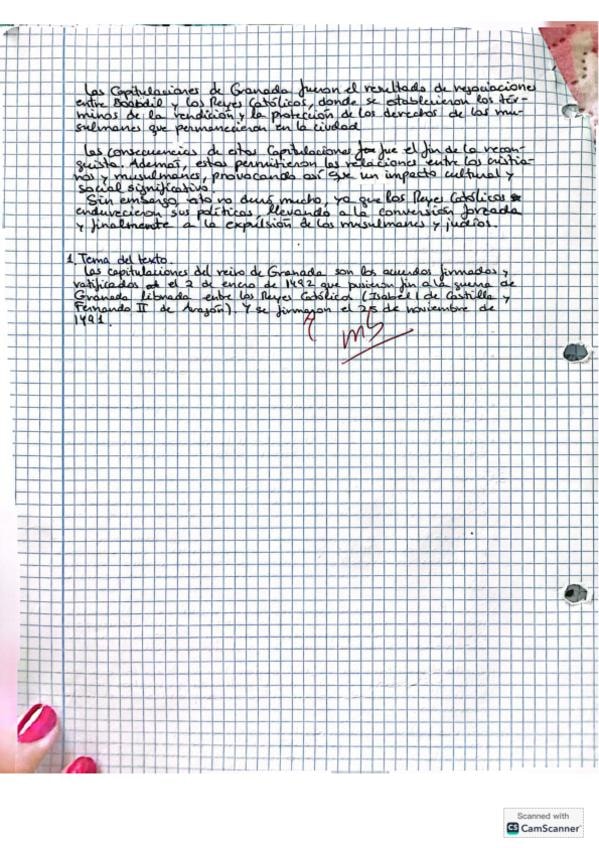 Las Capitulaciones de Granada fueron el resultado de negociaciones
entre Boabdil y los Reyes Católicos, donde se establecieron los tér-
minos de la rendición y la protección de los derechos de los mu-
sulmanes que permanecieron en la ciudad.
Las consecuencias de estas Capitulaciones fue el fin de la recon-
quista. Además, estas permitieron las relaciones entre los cristia-
nos y musulmanes, provocando así un impacto cultural y
social significativo.
Sin embargo esto no duró mucho, ya que los Reyes Católicos
endurecieron sus políticas, llevando a la conversión forzada
y finalmente a la expulsión de los musulmanes y judíos.
1. Tema del texto.
Las capitulaciones del reino de Granada son los acuerdos firmados y
ratificados el 2 de enero de 1492 que pusieron fin a la guerra de
Granada librada entre los Reyes Católicos (Isabel I de Castilla y
Fernando II de Aragón). Y se firmaron el 25 de noviembre de
1491.
Scanned with
CS CamScanner